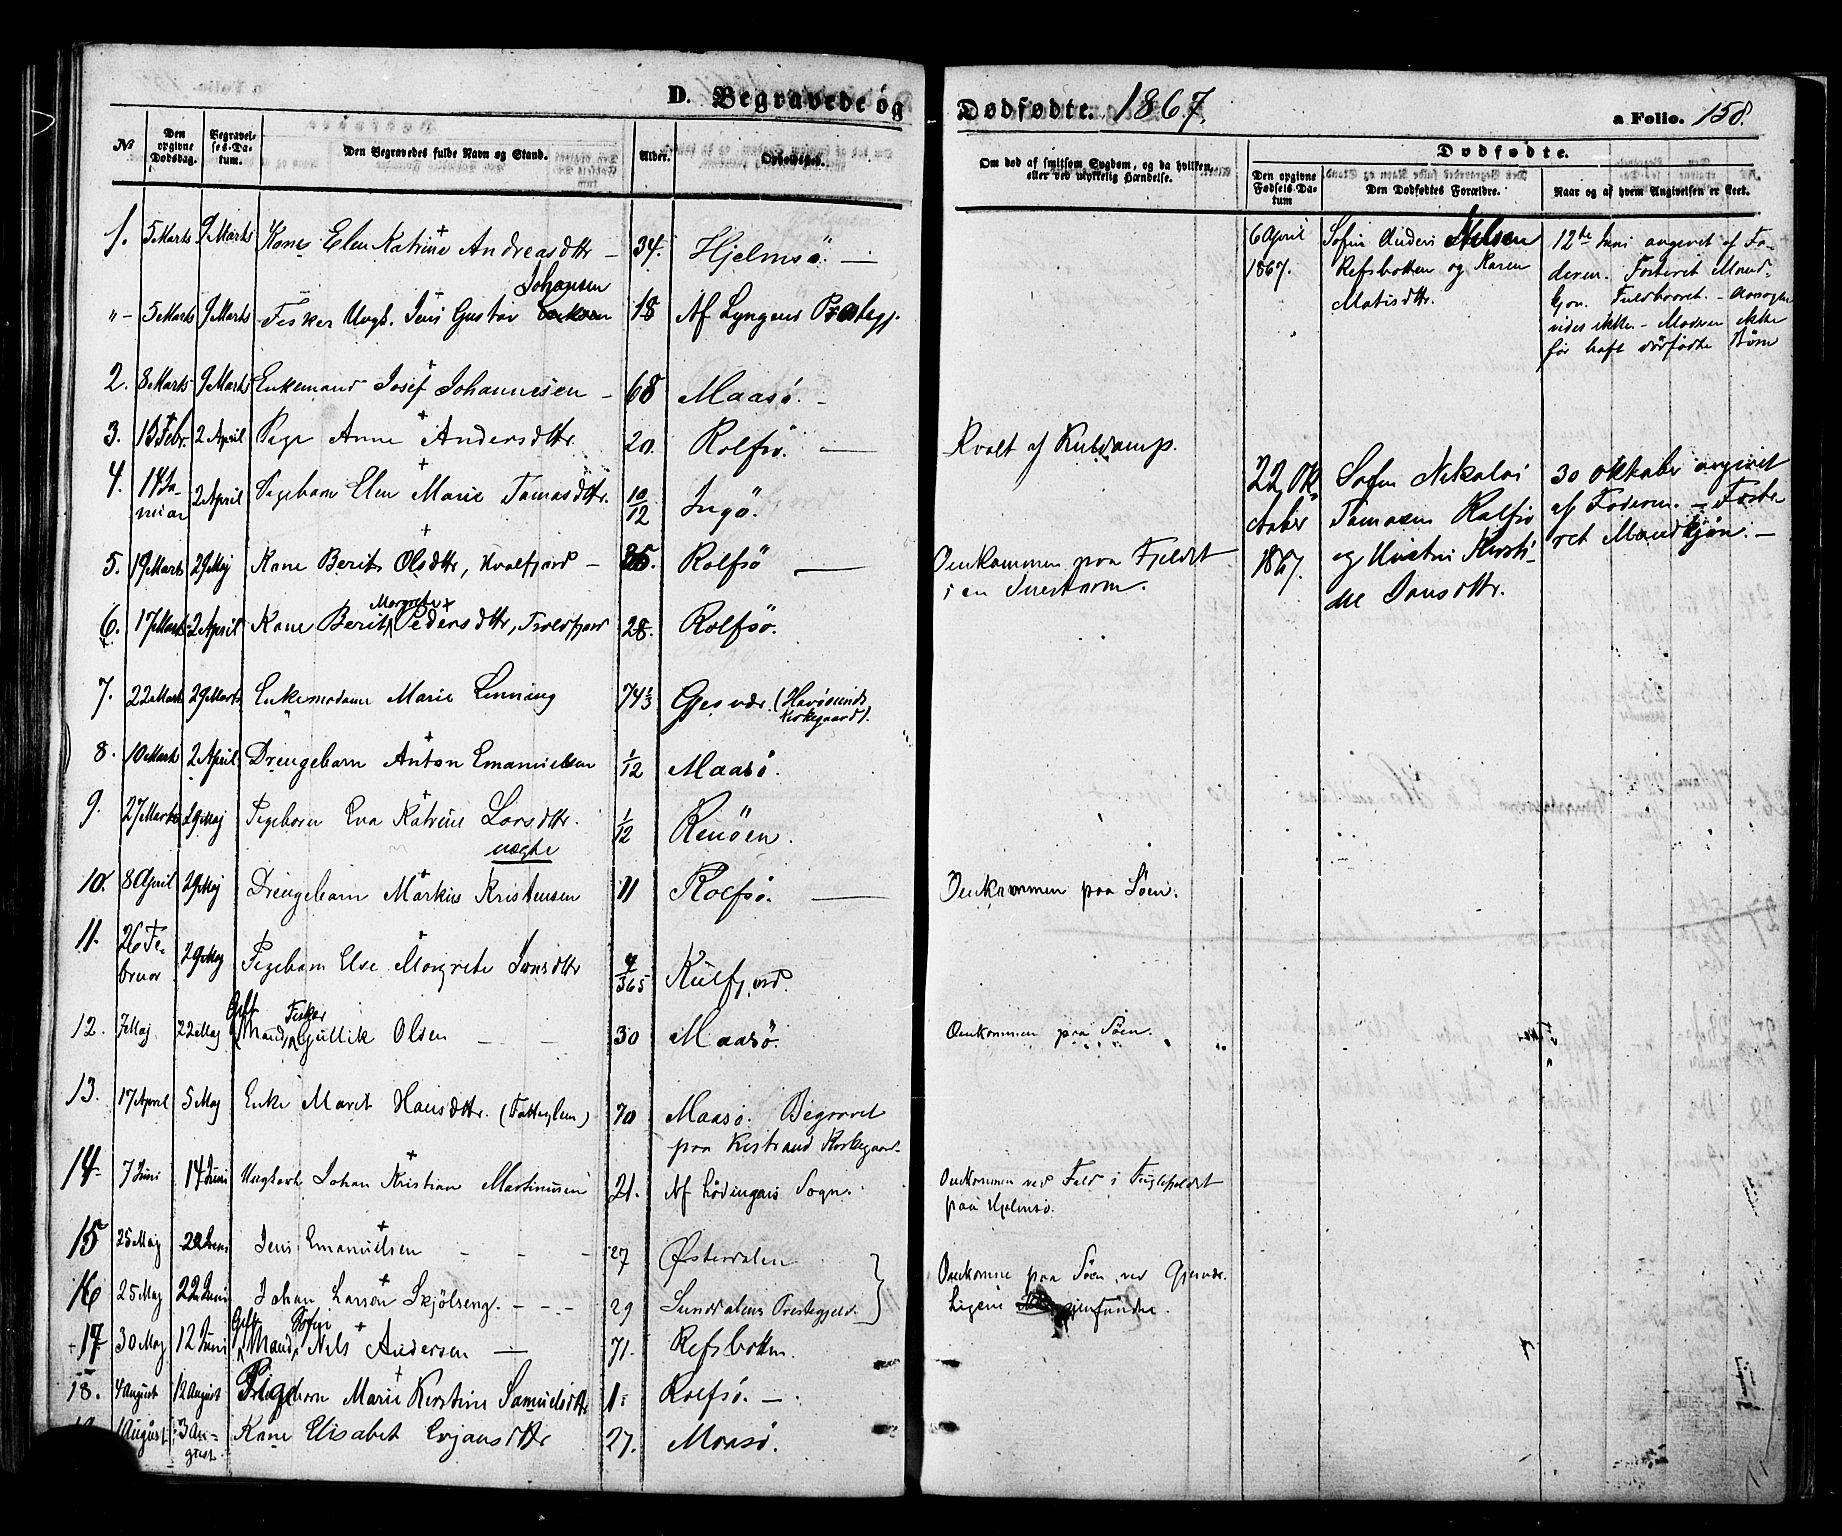 D. Begravede og Dødfødte. 1867. a Folio. 158.
№
Den opgivne Dødsdag.
Begravelses-Datum.
Den Begravedes fulde Navn og Stand.
Alder.
Opholdssted.
Om død af smitsom Sygdom, og da hvilken, eller ved ulykkelig Hændelse.
Dødfødte.
Den opgivne Fødsels-Datum
Den Dødfødtes Forældre.
Naar og af hvem Angivelsen er skeet.
1. 5 Marts 9 Marts Kone Elen Katrine Andreasdttr 34. Hjelmsö. —
Johansen
"- 5 Marts 9 Marts Fisker Ungk. Jens Gustav 18 Af Lyngens Præstegj.
2. 8 Marts 9 Marts Enkemand Josef Johannesen - 68 Maasö. -
3. 13 Febr. 2 April Pige Anne Andersdttr. 20. Rolfsö. — Kvalt af Kuldamp.
4. 14 Januar 2 April Pigebarn Elen Marie Tomasdttr. 10/12 Ingö.
5. 19 Marts 29 Maj Kone Berit Olsdttr, Kvalfjord - Rolfsö — Omkommen paa Fjeldet
i en Snestorm.
Margrete
6. 17 Marts 2 April Kone Berit Pedersdttr, Troldfjord 28. Rolfsö.
7. 22 Marts 29 Marts Enkemadame Marie Lenning 74 Gjesvær. (Havösunds
Kirkegaard).
8. 10 Marts 2 April. Drengebarn Anton Emanuelsen 1/12 Maasö.
9. 27 Marts 29 Maj Pigebarn Eva Katrine Larsdttr. 1/12 Renöen.
uægte
10. 8 April 29 Maj Drengebarn Markus Kristensen 11 Rolfsö. — Omkommen paa Söen.
11. 26 Februar 29 Maj Pigebarn Else Margrete Jonsdttr /365 Kulfjord.
Gift Fisker
12. 7 Maj 22 Maj Mand, Gullik Olsen — — 30 Maasö. Omkommen paa Söen.
13. 17 April 5 Maj Enke Maret Hansdttr. (Fattiglem) 70 Maasö. Begravet
paa Kistrand Kirkegaard.
14. 7 Juni 14 Juni Ungkarl Johan Kristian Martinusen 21. Af Lödingens Sogn. Omkommen ved Fald i Fuglefjeldet
paa Hjelmsö.
15 25 Maj 22 Juni Jens Emanuelsen - - - 27 Østerdalen
16 25 Maj 22 Juni Johan Larsen Skjölseng. - - - 29 Sundalens Præstegjeld. Omkomne paa Söen ved Gjesvær.
Ligene gjenfundne.
Gift Söfin
17 30 Maj 12 Juni Mand, Nils Andersen — 71. Refsbotten.
18. 4 August 12 August Pigebarn Marie Kirstine Samuelsdttr 1. Rolfsö. —
1 August 13 August. Kone Elisabet Evjansdttr 27. Maasö.
6 April 1867. Sofin Anders Nilsen
Refsbotten og Karen
Matisdttr.
12te Juni angivet af Faderen.
Fosteret Mandkjøn.
Fuldbaaret. - Aarsagen
vides ikke. - Moderen ikke
før haft dødfødte Börn
22 Oktober 1867. Sofin Nikolai
Tomasen Rolfsö
og Hustru Kirstine
Jonsdttr.
30 Oktober angivet
af Faderen. - Fosteret
Mandkjøn. -